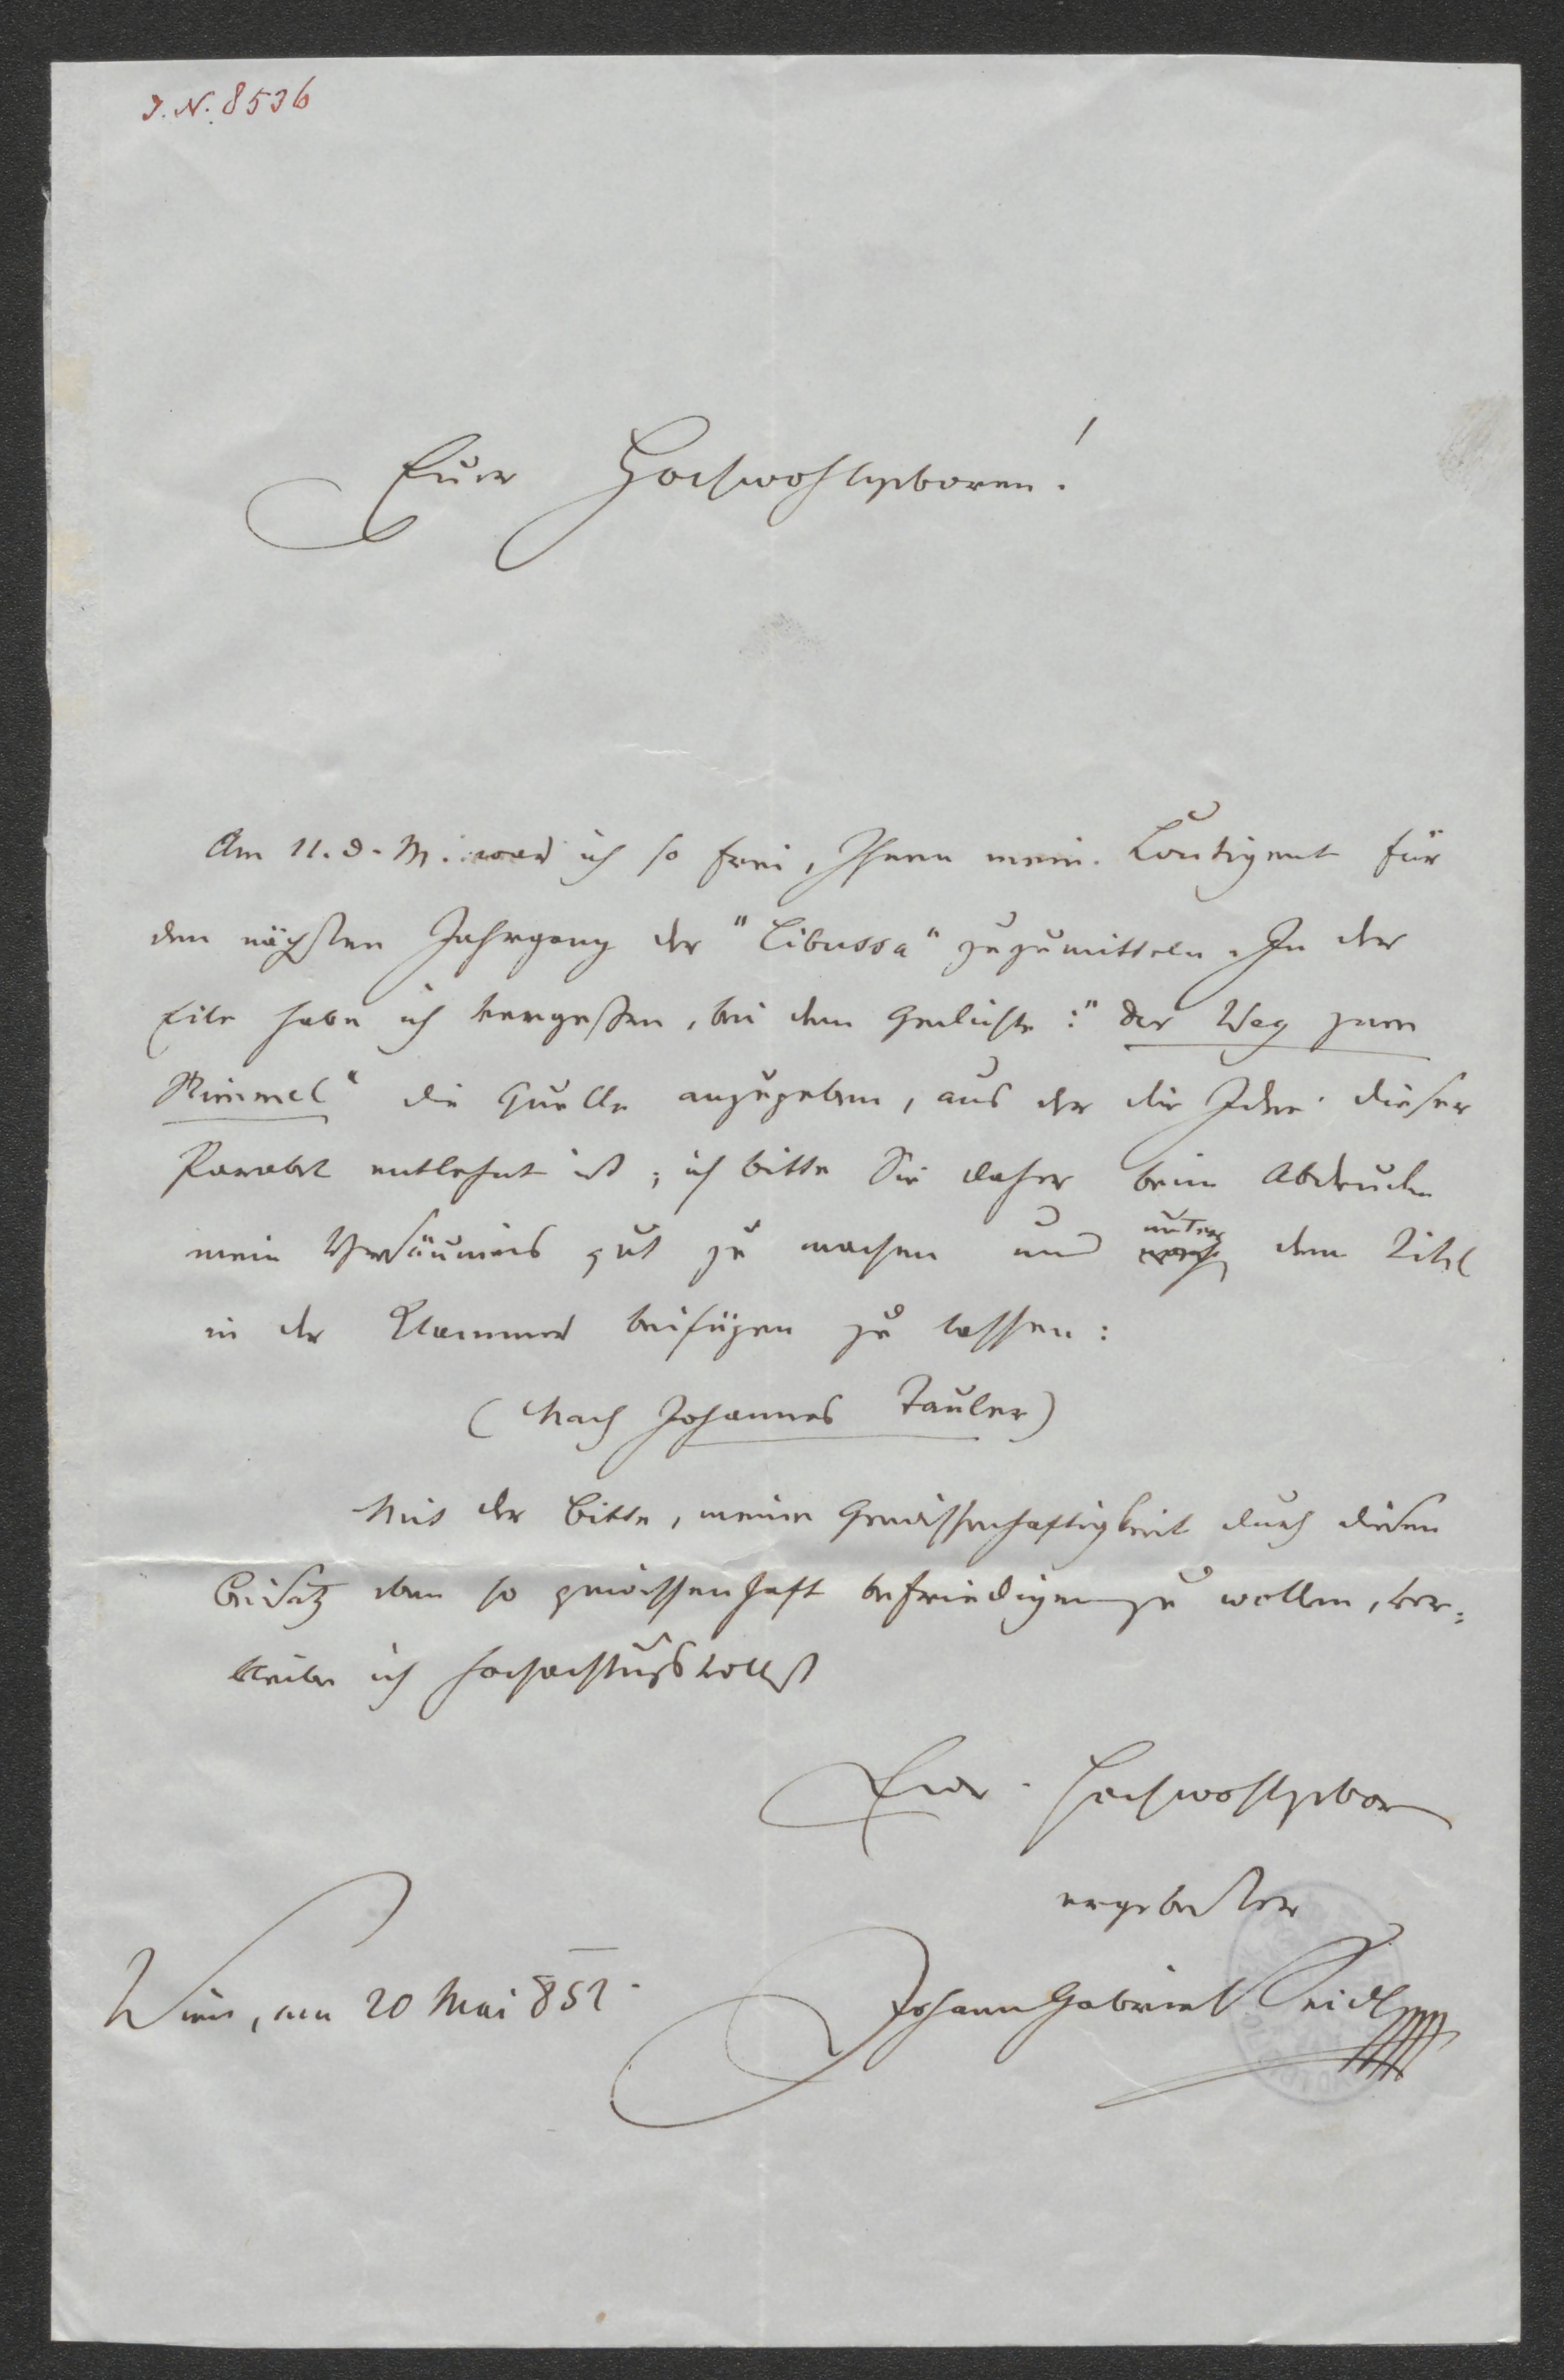 J. N. 8536
Euer Hochwohlgeboren!
Am 11. d. M. war ich so frei, Ihnen mein Contigent für
den nächsten Jahrgang der "Libussa" zuzumitteln. In der
Eile habe ich vergessen, bei dem Gedichte: "Der Weg zum
Himmel" die Quelle anzugeben, aus der die Idee dieser
Parabel entlehnt ist; ich bitte Sie daher beim Abdrucke
mein Versäumnis gut zu machen und unter dem Titel
in der Klammer beifügen zu lassen:
(Nach Johannes Tauler)
Mit der Bitte, meine Gewissenhaftigkeit durch diesen
Beisatz eben so gewissenhaft befriedigen zu wollen, ver=
bleibe ich hochachtungsvollst
Euer Hochwohlgebor
ergebenster
Wien, am 20 Mai 851.
Johann Gabriel Seidl